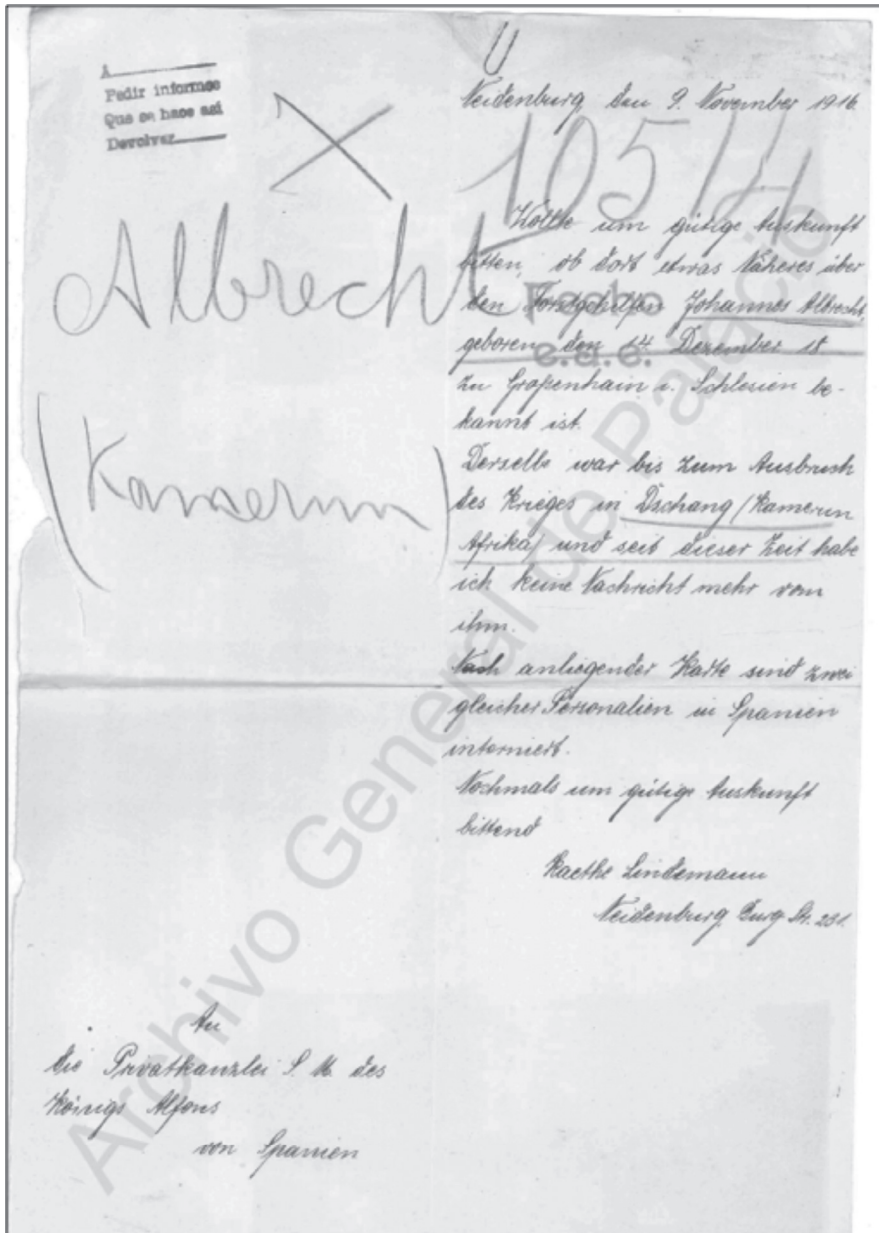 A
Pedir informes
Que se hace asi
Devolver
U
Neidenburg den 9. November 1916
X
105/4
Albrecht
(Kamerun)
Fecho
e.a.e.
Wollte um gütige Auskunft
bitten, ob dort etwas Näheres über
den Forstgehilfen Johannes Albrecht,
geboren den 14. Dezember 18
zu Großenhain i. Schlesien be-
kannt ist.
Derselbe war bis zum Ausbruch
des Krieges in Dschang (Kamerun
Afrika) und seit dieser Zeit habe
ich keine Nachricht mehr von
ihm.
Nach anliegender Karte sind zwei
gleicher Personalien in Spanien
interniert.
Nochmals um gütige Auskunft
bittend
Kaethe Lindemann
Neidenburg, Burg Str. 231.
An
die Privatkanzlei S. M. des
Königs Alfons
von Spanien
Archivo General de Palacio